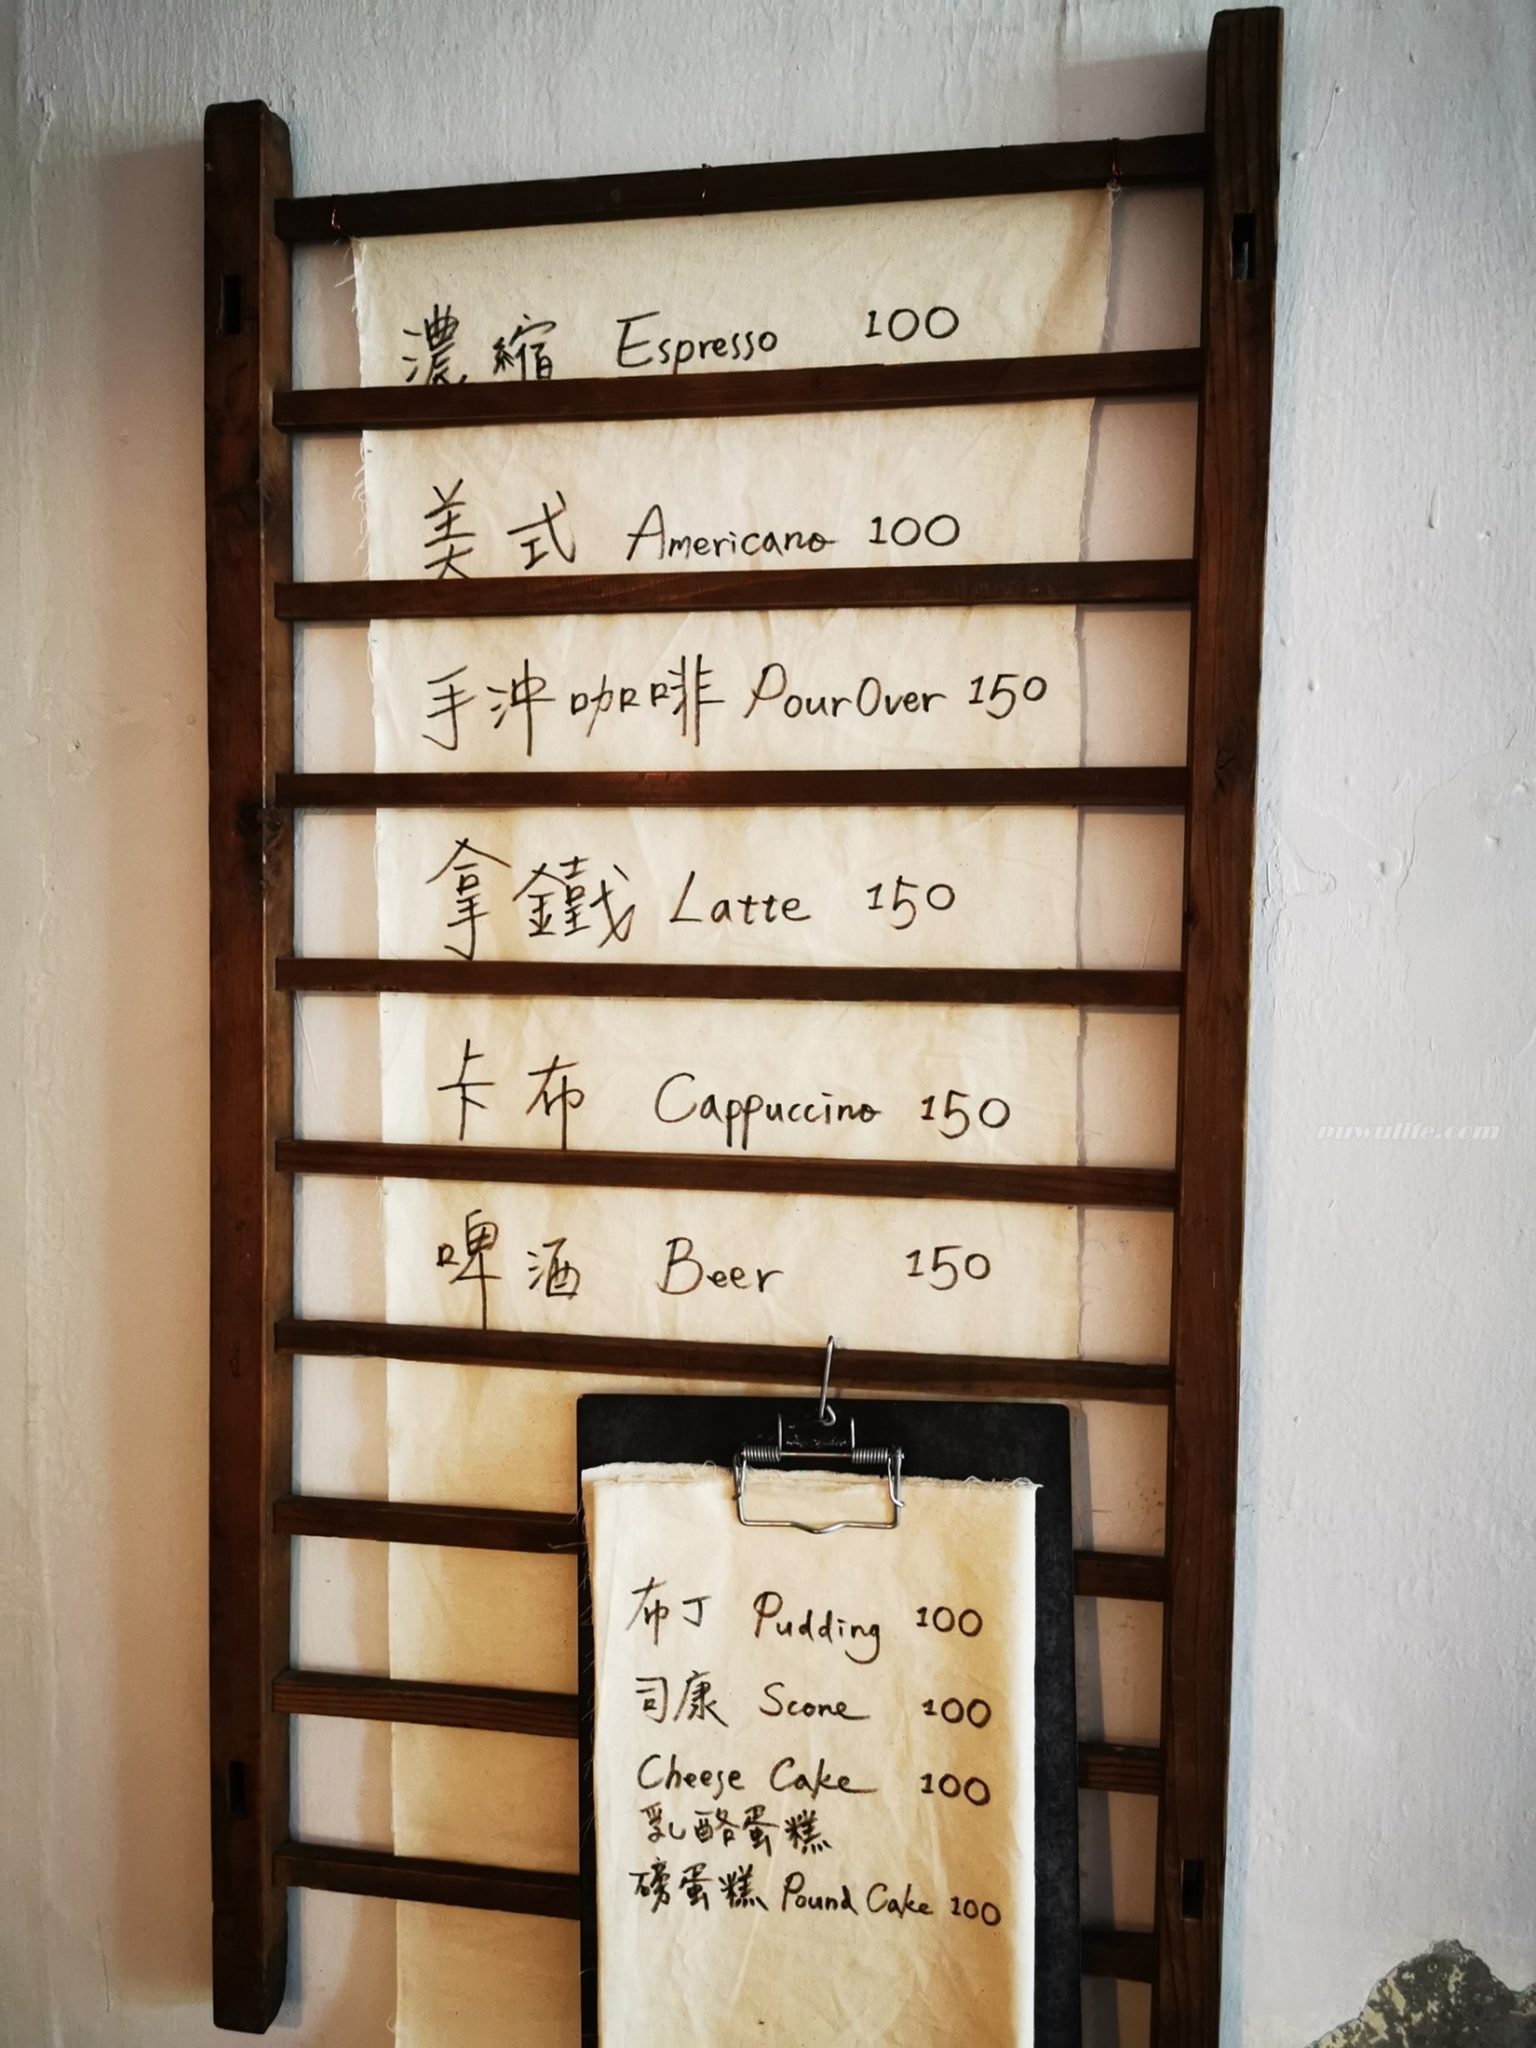 濃縮 Espresso 100
美式 Americano 100
手沖咖啡 PourOver 150
拿鐵 Latte 150
卡布 Cappuccino 150
啤酒 Beer 150
puwulife.com
布丁 Pudding 100
司康 Scone 100
Cheese Cake 100
乳酪蛋糕
磅蛋糕 Pound Cake 100